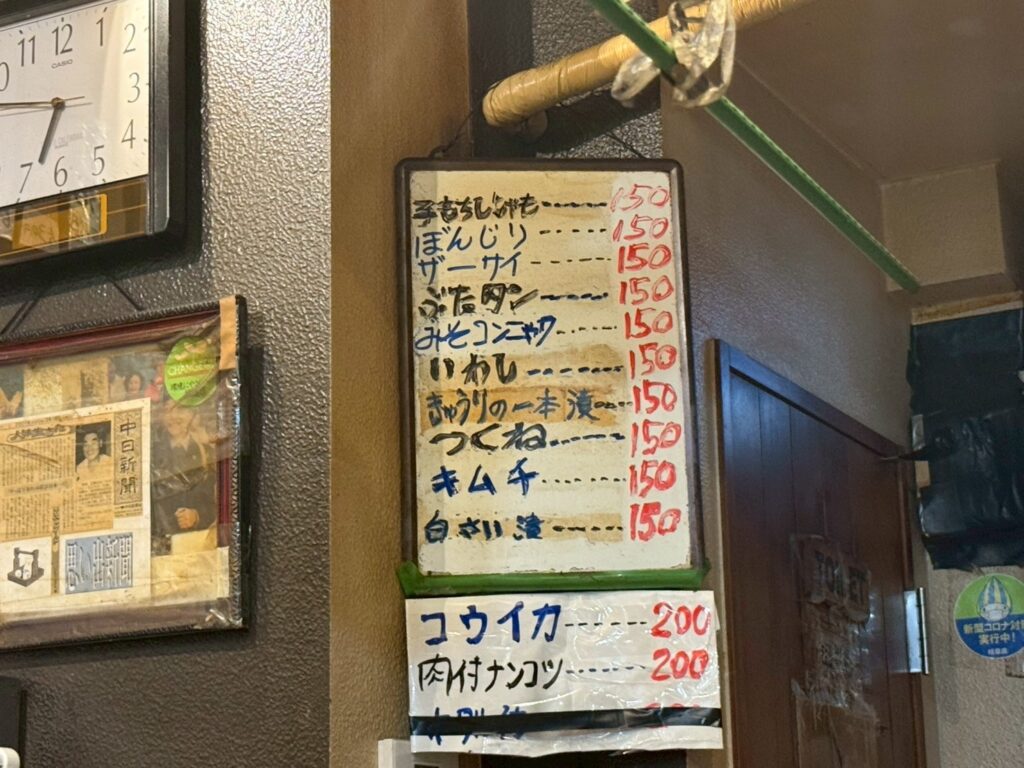 11 12 1
2
3
4
5
6
7
CASIO
子もちししゃも 150
ぼんじり 150
ザーサイ 150
ぶたタン 150
みそコンニャク 150
いわし 150
きゅうりの一本漬 150
つくね 150
キムチ 150
白さい漬 150
コウイカ 200
肉付ナンコツ 200
CHANGE
中日新聞
思い出新聞
TOILET
新型コロナ対策
実行中!
岐阜県